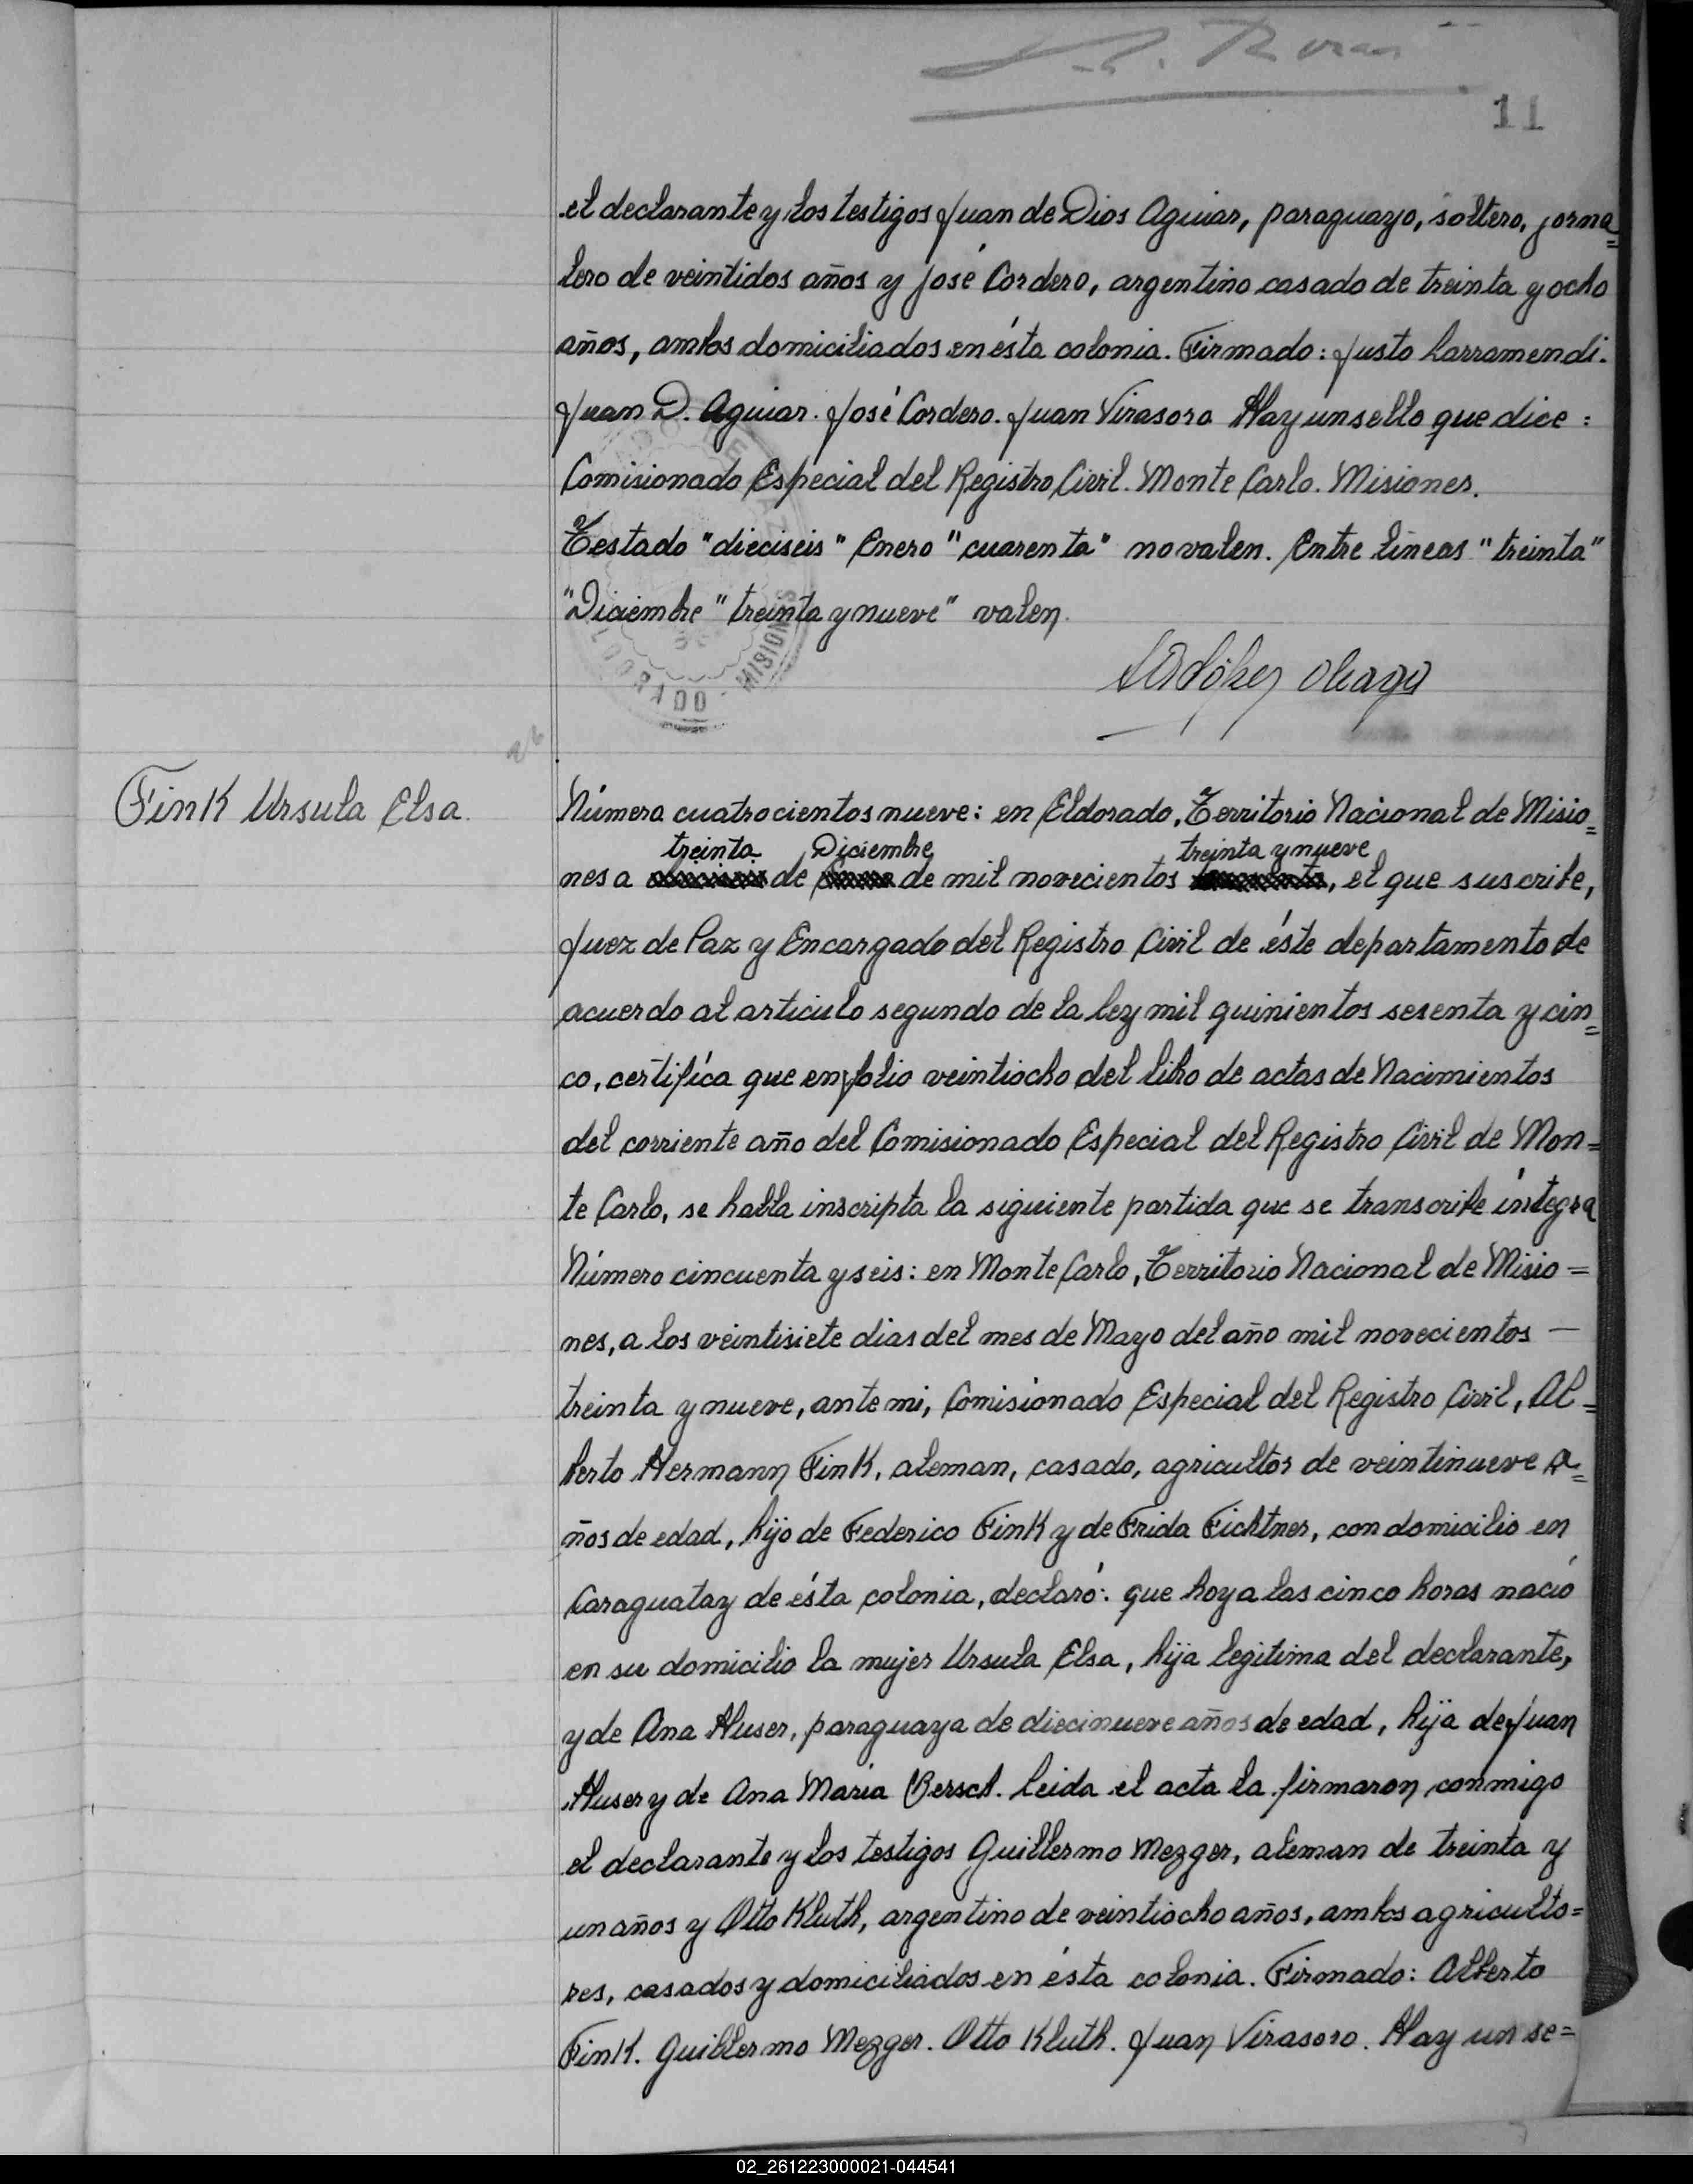 11
el declarante y los testigos Juan de Dios Aguiar, paraguayo, soltero, jorna=
lero de veintidos años y José Cordero, argentino casado de treinta y ocho
años, ambos domiciliados en ésta colonia. Firmado: Justo Larramendi.
Juan D. Aguiar. José Cordero. Juan Virasoro Hay un sello que dice:
Comisionado Especial del Registro Civil. Monte Carlo. Misiones.
Testado "dieciseis" Enero "cuarenta" no valen. Entre lineas "treinta"
"Diciembre" treinta y nueve" valen.
MISIONES
ELDORADO
Fink Ursula Elsa.
Número cuatrocientos nueve: en Eldorado, Territorio Nacional de Misio=
treinta Diciembre treinta y nueve
nes a de de mil novecientos , el que suscribe,
Juez de Paz y Encargado del Registro Civil de éste departamento de
acuerdo al articulo segundo de la ley mil quinientos sesenta y cin=
co, certifíca que en folio veintiocho del libro de actas de Nacimientos
del corriente año del Comisionado Especial del Registro Civil de Mon=
te Carlo, se halla inscripta la siguiente partida que se transcribe íntegra
Número cincuenta y seis: en Monte Carlo, Territorio Nacional de Misio=
nes, a los veintisiete dias del mes de Mayo del año mil novecientos —
treinta y nueve, ante mi, Comisionado Especial del Registro Civil, Al=
berto Hermann Fink, aleman, casado, agricultor de veintinueve a=
ños de edad, hijo de Federico Fink y de Frida Fichtner, con domicilio en
Caraguatay de ésta colonia, declaró: que hoy a las cinco horas nació
en su domicilio la mujer Ursula Elsa, hija legitima del declarante,
y de Ana Huser, paraguaya de diecinueve años de edad, hija de Juan
Huser y de Ana Maria Bersch. Leida el acta la firmaron conmigo
el declarante y los testigos Guillermo Mezger, aleman de treinta y
un años y Otto Kluth, argentino de veintiocho años, ambos agriculto=
res, casados y domiciliados en ésta colonia. Firmado: Alberto
Fink. Guillermo Mezger. Otto Kluth. Juan Virasoro. Hay un se=
02_261223000021-044541